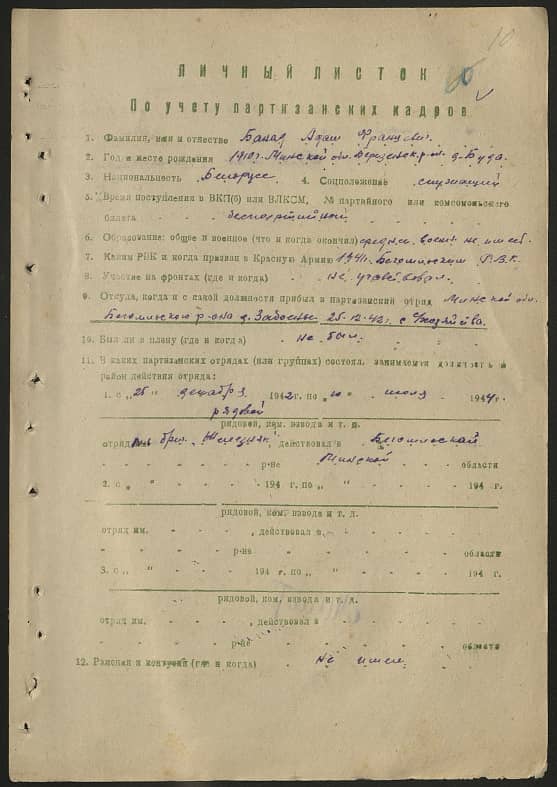 10
ЛИЧНЫЙ ЛИСТОК
По учету партизанских кадров
1. Фамилия, имя и отчество Банад Адам Францевич
2. Год и место рождения 1910 г. Минской обл. д. Буда.
3. Национальность Белорус 4. Соцположение служащий
5. Время поступления в ВКП(б) или ВЛКСМ, № партийного или комсомольского
билета беспартийный
6. Образование: общее и военное (что и когда окончил) среднее, воен. не имеет.
7. Каким РВК и когда призван в Красную Армию 1941 г. Бегомльским Р.В.К.
8. Участие на фронтах (где и когда) не участвовал.
9. Откуда, когда и с какой должности прибыл в партизанский отряд Минской обл.
Бегомльского р-она д. 25-12-42 г. с хозяйства.
10. Был ли в плену (где и когда) не был.
11. В каких партизанских отрядах (или группах) состоял, занимаемая должность и
район действия отряда:
1. с „25" декабря 1942 г. по „10" июля 1944 г.
рядовой
рядовой, ком. взвода и т. д.
отряд №1 бриг. „Железняк", действовал в Бегомльской
р-не Минской области
2. с „ " 194 г. по „ " 194 г.
рядовой, ком. взвода и т. д.
отряд им. , действовал в
р-не области
3. с „ " 194 г. по „ " 194 г.
рядовой, ком. взвода и т. д.
отряд им. , действовал в
р-не области
12. Ранения и контузии (где и когда) не имел.